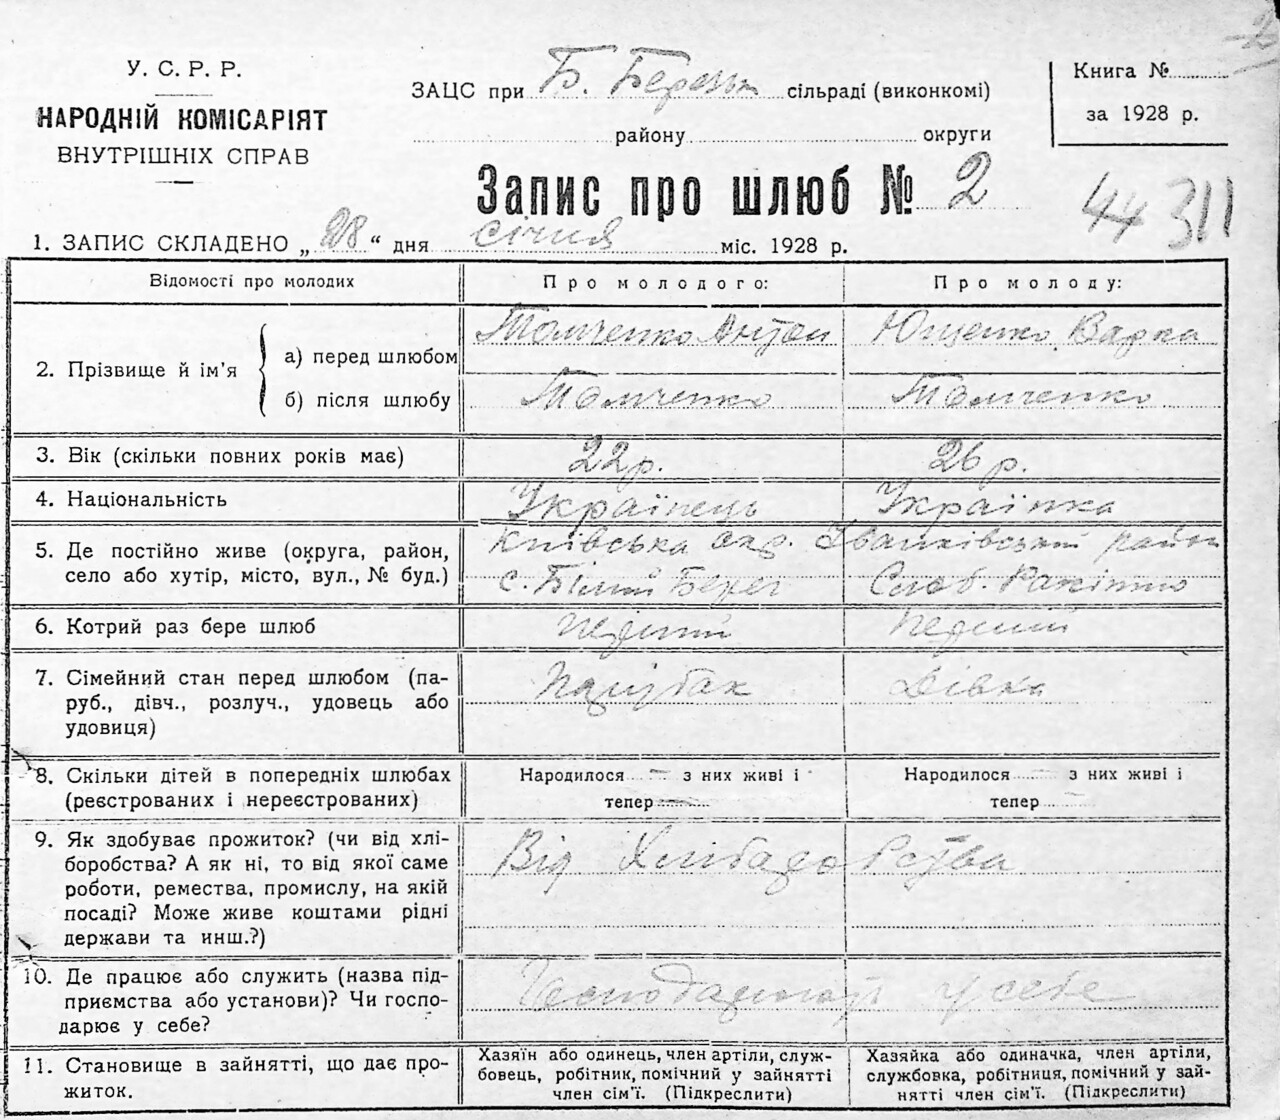 У. С. Р. Р.
НАРОДНІЙ КОМІСАРІЯТ
ВНУТРІШНІХ СПРАВ
ЗАЦС при Б. Березьк сільраді (виконкомі)
району округи
Книга №
за 1928 р.
Запис про шлюб № 2
44 311
1. ЗАПИС СКЛАДЕНО „28“ дня січня міс. 1928 р.
Відомості про молодих
Про молодого:
Про молоду:
2. Прізвище й ім’я
а) перед шлюбом
Томченко Антон
Ющенко Варка
б) після шлюбу
Томченко
Томченко
3. Вік (скільки повних років має)
22 р.
26 р.
4. Національність
Українець
Українка
5. Де постійно живе (округа, район,
село або хутір, місто, вул., № буд.)
Київська окр. Іванківський район
с. Білий Берег
Слоб.
6. Котрий раз бере шлюб
Перший
Перший
7. Сімейний стан перед шлюбом (па-
руб., дівч., розлуч., удовець або
удовиця)
Парубак
Дівка
8. Скільки дітей в попередніх шлюбах
(реєстрованих і нереєстрованих)
Народилося — з них живі і
тепер —
Народилося — з них живі і
тепер —
9. Як здобуває прожиток? (чи від хлі-
боробства? А як ні, то від якої саме
роботи, ремества, промислу, на якій
посаді? Може живе коштами рідні
держави та инш.?)
Від Хлібаробства
10. Де працює або служить (назва під-
приємства або установи)? Чи госпо-
дарює у себе?
у себе
11. Становище в зайнятті, що дає про-
житок.
Хазяїн або одинець, член артіли, служ-
бовець, робітник, помічний у зайнятті
член сім’ї. (Підкреслити)
Хазяйка або одиначка, член артіли,
службовка, робітниця, помічний у зай-
нятті член сім’ї. (Підкреслити)